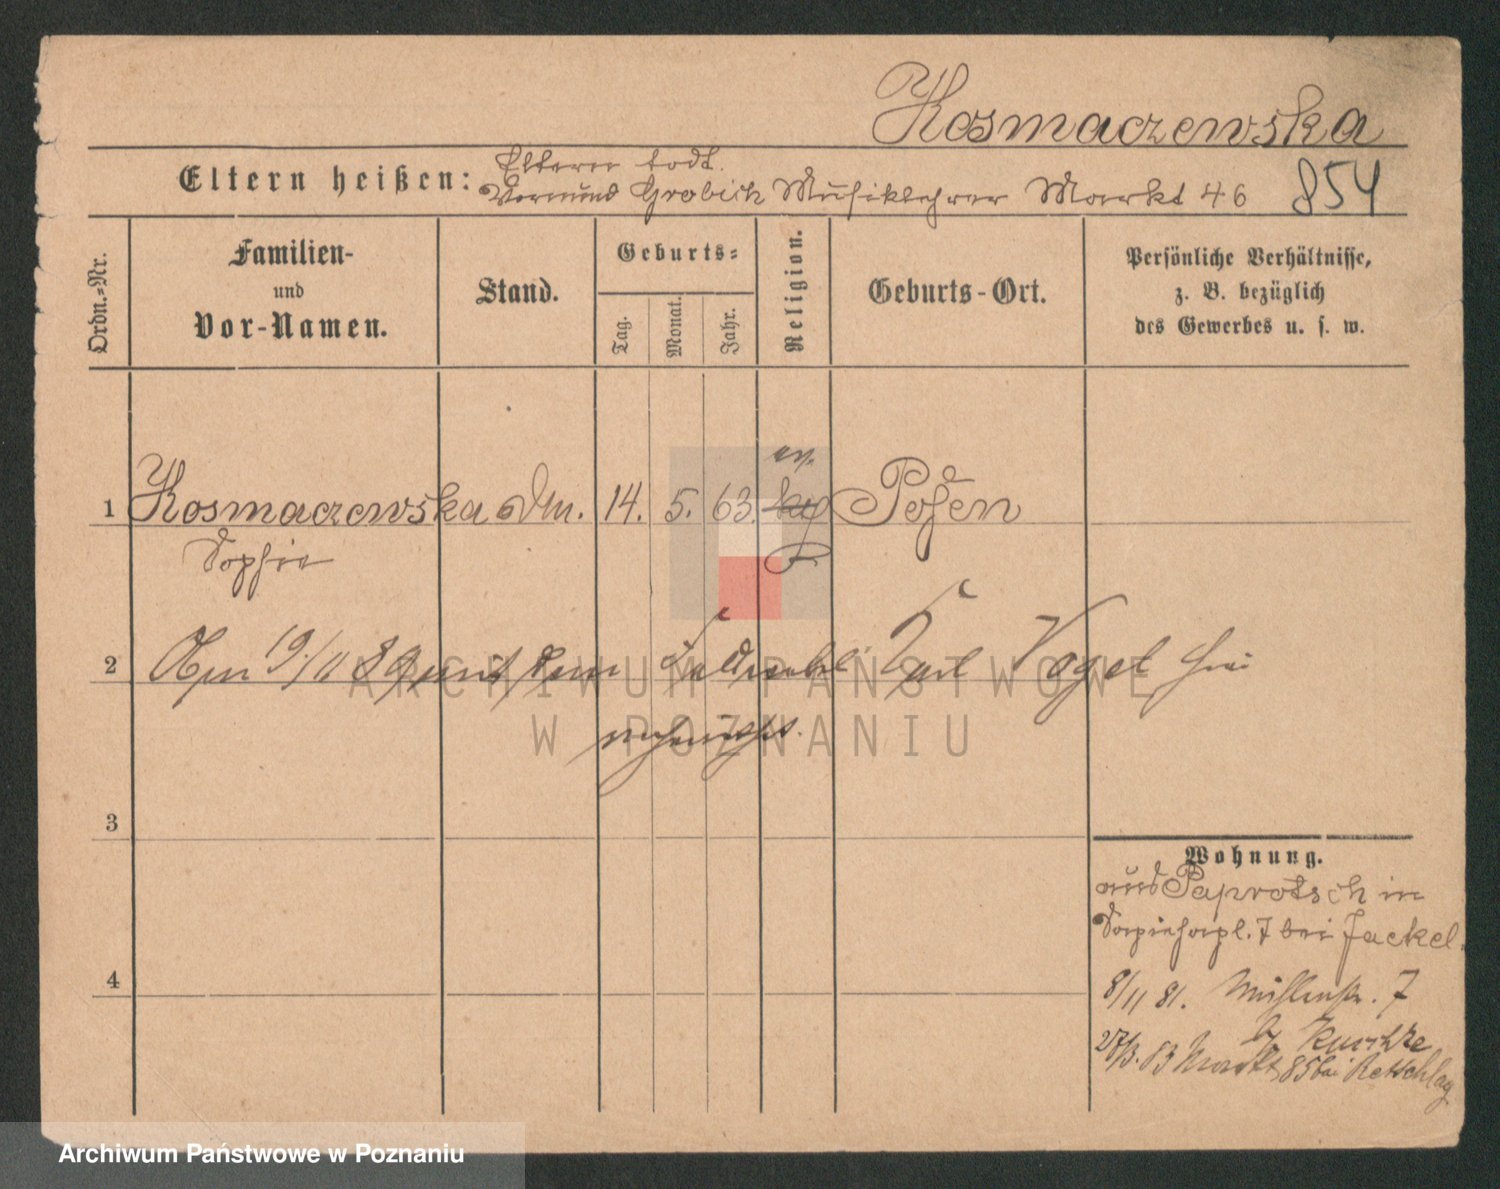 Kosmaczewska
Eltern heißen: Eltern todt.
Vormund Grobich Musiklehrer Markt 46 854
Ordn.-Nr.
Familien-
und
Vor-Namen.
Stand.
Geburts-
Tag.
Monat.
Jahr.
Religion.
Geburts-Ort.
Persönliche Verhältnisse,
z. B. bezüglich
des Gewerbes u. s. w.
ev.
1 Kosmaczewska 14. 5. 63. Posen
Sophie
2 19/11 mit dem Feldwebel Carl Vogel hier
verheirathet.
ARCHIWUM PAŃSTWOWE
W POZNANIU
3
Wohnung.
aus Paprotsch in
Sapiehapl. 7 bei Jackel.
4
8/11 81. Mühlenstr. 7
b/ Kuschke
27/3. 83 Markt 85 bei Retschlag
Archiwum Państwowe w Poznaniu